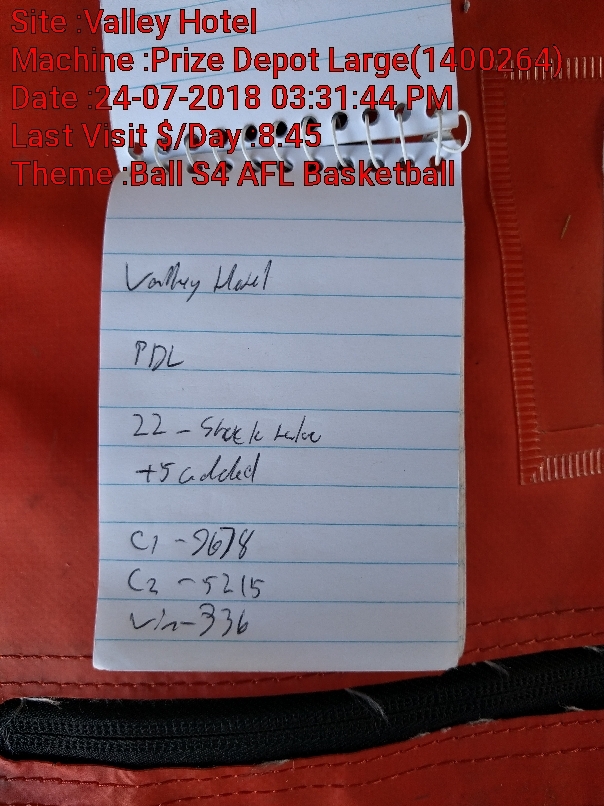 Site :Valley Hotel
Machine :Prize Depot Large(1400264)
Date :24-07-2018 03:31:44 PM
Last Visit $/Day :8.45
Theme :Ball S4 AFL Basketball
Valley Hotel
PDL
22 - Stock
+5 added
C1 - 9678
C2 - 5215
Win - 336